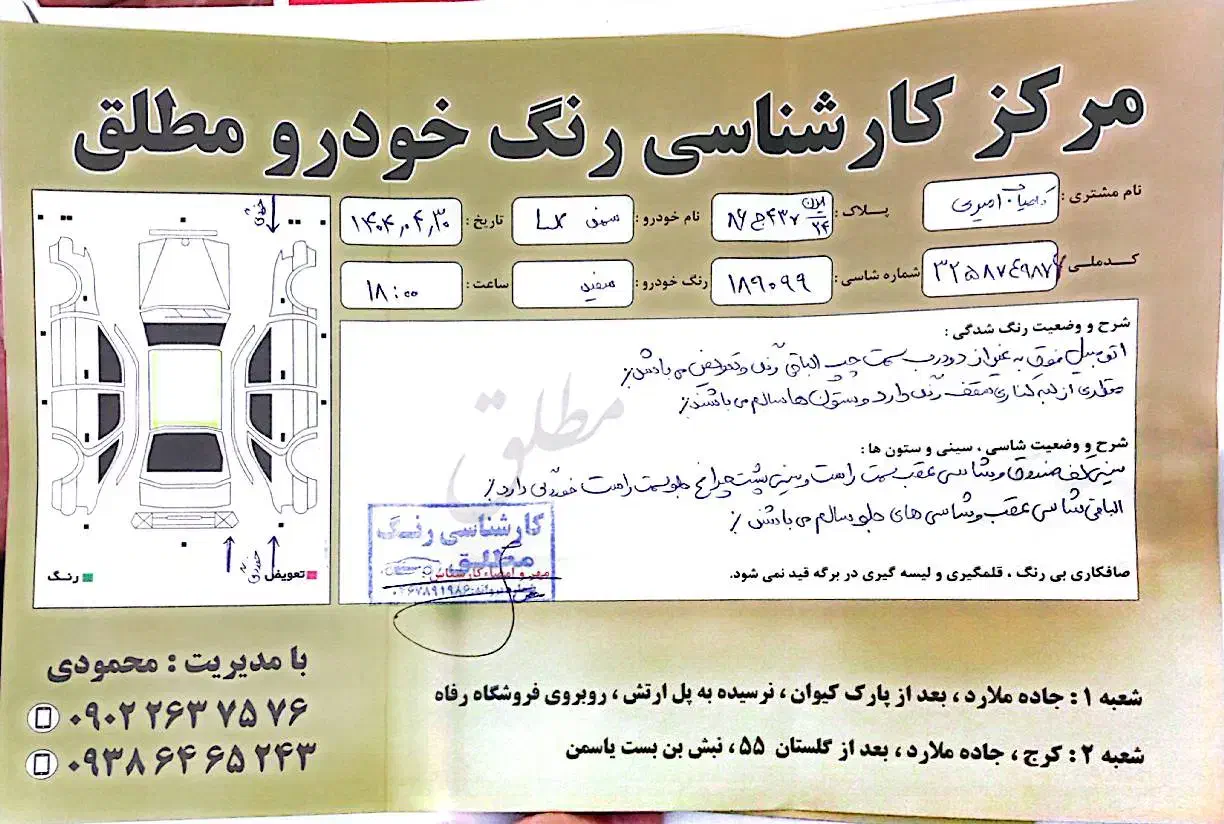 مرکز کارشناسی رنگ خودرو مطلق
نام مشتری : امیری
پلاک : ایران ۲۴ ۴۳۷ج۸۶
نام خودرو : سمند Lx
تاریخ : ۱۴۰۴٫۰۴٫۳۰
کدملی : ۳۲۵۸۷۴۹۸۷۲
شماره شاسی : ۱۸۹۰۹۹
رنگ خودرو : سفید
ساعت : ۱۸:۰۰
شرح و وضعیت رنگ شدگی :
اتومبیل فوق به غیر از دو درب سمت چپ الباقی رنگ و تعویض می باشد٪
مقداری از لبه کناری سقف رنگ دارد و ستون ها سالم می باشند٪
شرح و وضعیت شاسی ، سینی و ستون ها :
سینی کف صندوق و شاسی عقب سمت راست و سینی پشت چراغ جلو سمت راست خوردگی دارد٪
الباقی شاسی عقب و شاسی های جلو سالم می باشند٪
صافکاری بی رنگ ، قلمگیری و لیسه گیری در برگه قید نمی شود.
مطلق
کارشناسی رنگ
مطلق
مهر و امضاء کارشناس :
تعویض
رنگ
با مدیریت : محمودی
۰۹۰۲ ۲۶۳ ۷۵ ۷۶
۰۹۳۸ ۶۴ ۶۵ ۲۴۳
شعبه ۱ : جاده ملارد ، بعد از پارک کیوان ، نرسیده به پل ارتش ، روبروی فروشگاه رفاه
شعبه ۲ : کرج ، جاده ملارد ، بعد از گلستان ۵۵ ، نبش بن بست یاسمن